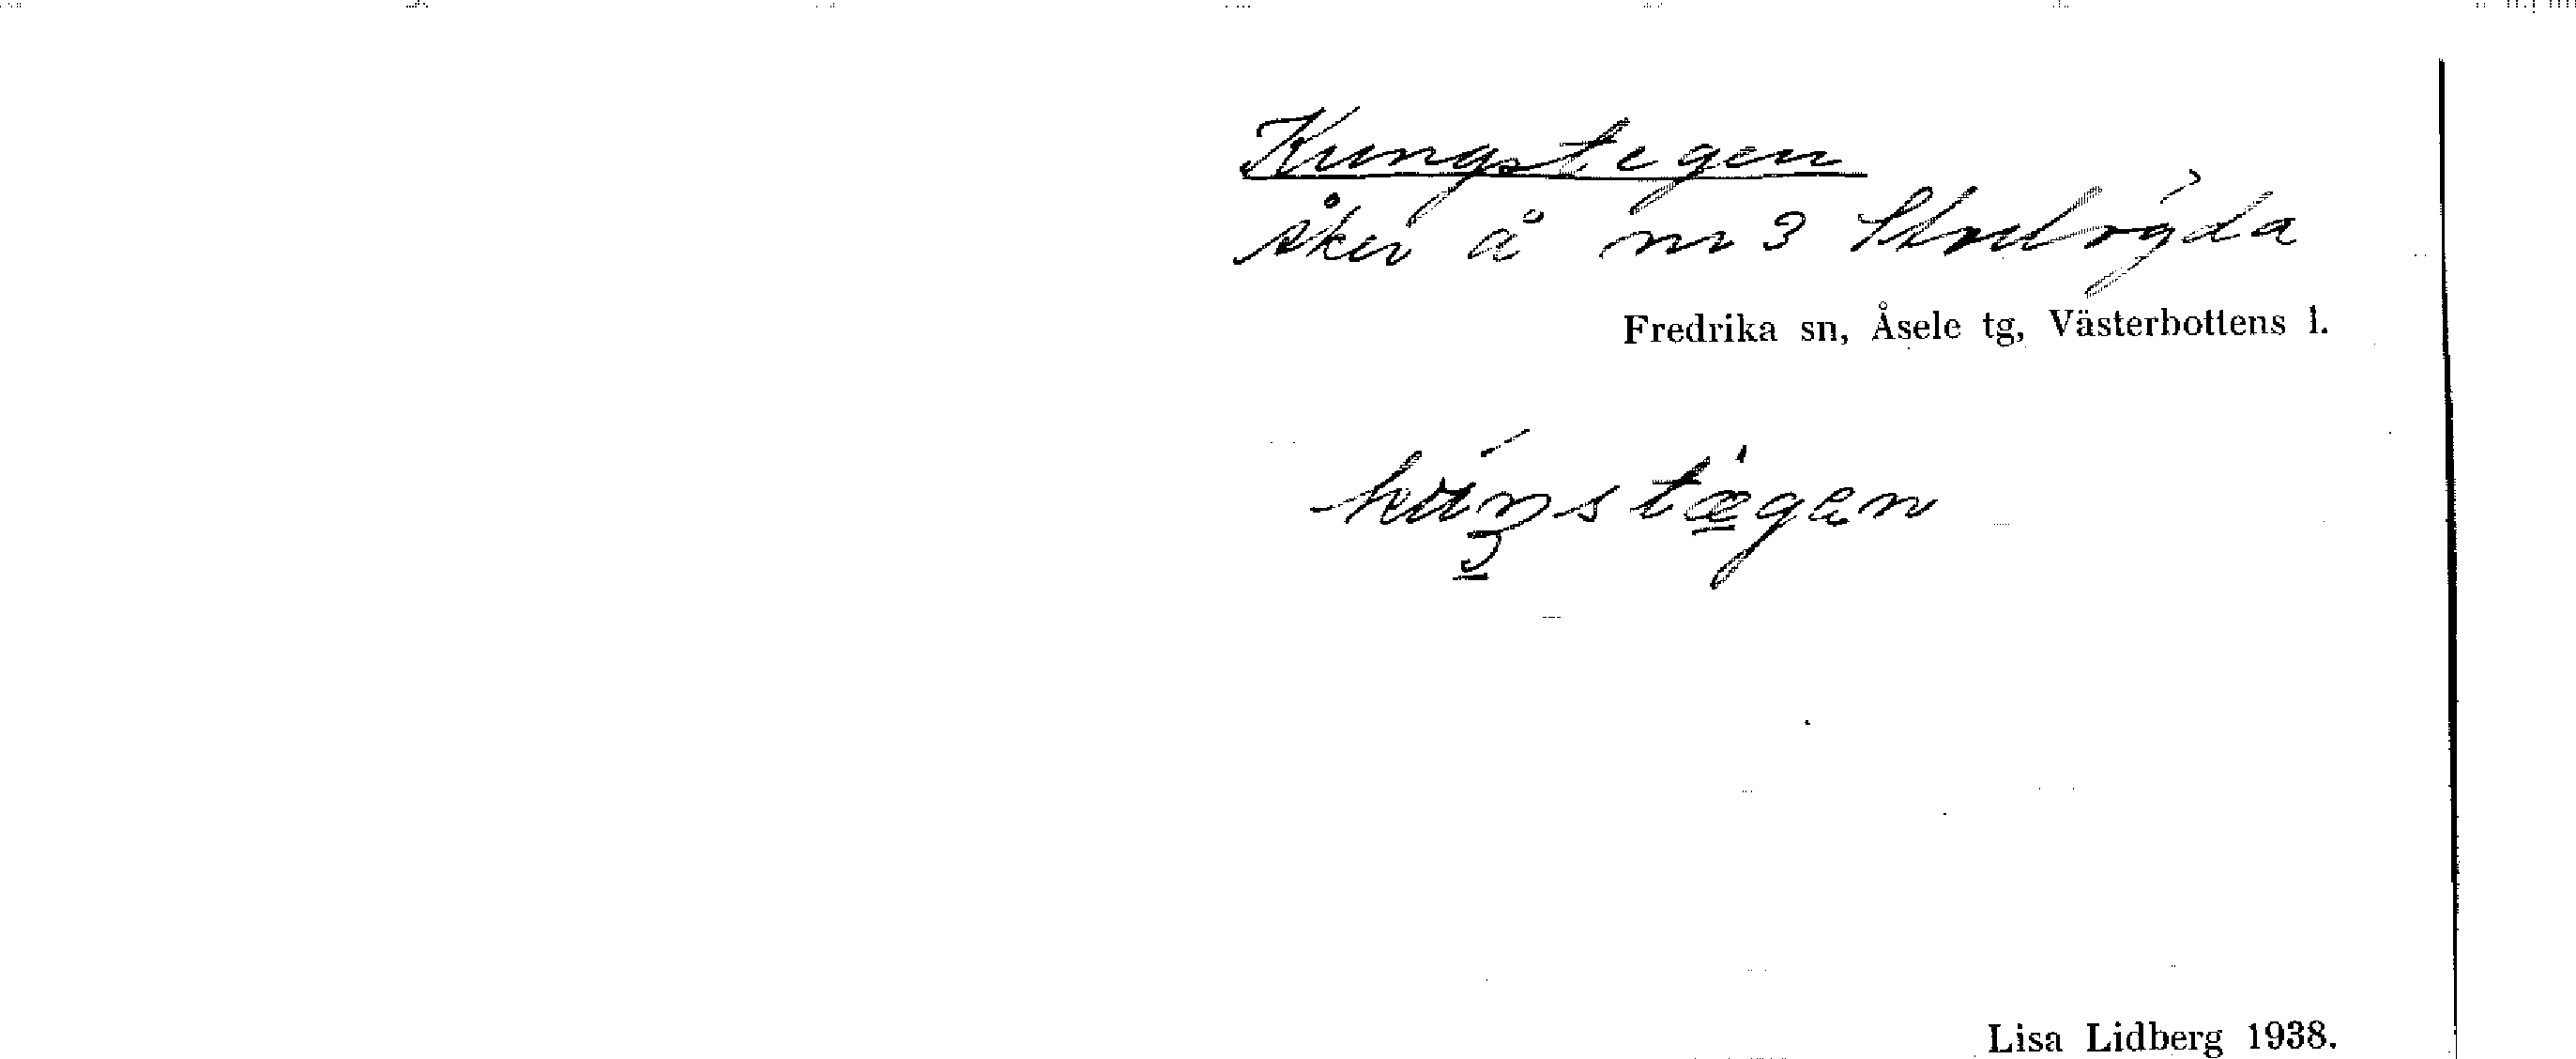 Kungstegen
åker å nr 3 Storlögda
Fredrika sn, Åsele tg, Västerbottens l.
Lisa Lidberg 1938.